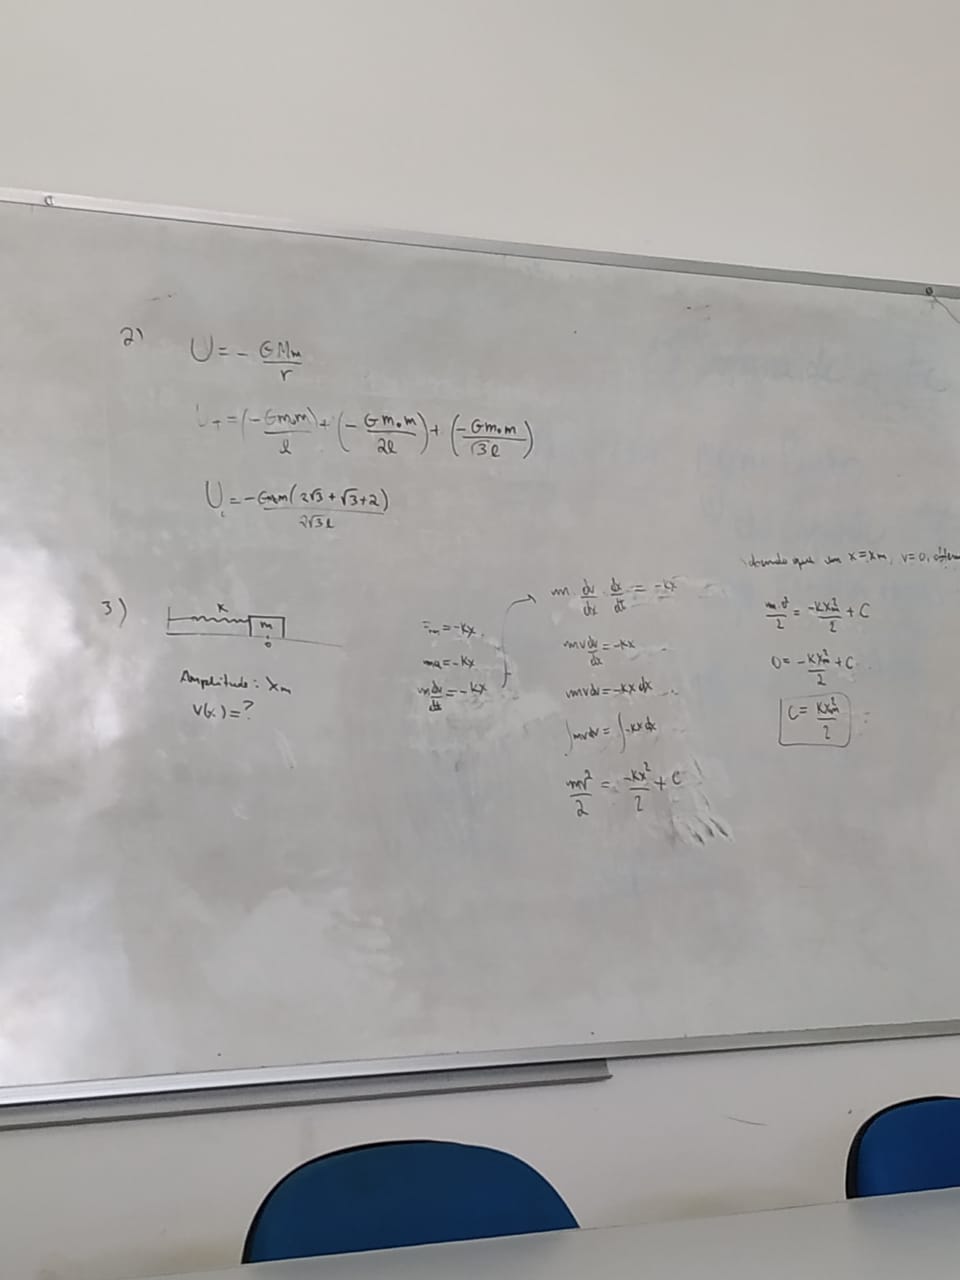 2)
U = - GMm/r
U_T = (-Gm₀m/l) + (-Gm₀m/2l) + (-Gm₀m/√3l)
U = -Gm₀m(2√3 + √3 + 2)/2√3l
3)
K
m
0
Amplitude: Xm
V(x) = ?
= -Kx
ma = -Kx
m dv/dt = -Kx
m · dv/dx · dx/dt = -Kx
mv dv/dx = -Kx
mvdv = -Kxdx
∫mvdv = ∫-Kxdx
mv²/2 = -Kx²/2 + C
que em x = xm, v = 0,
m·0²/2 = -Kxm²/2 + C
0 = -Kxm²/2 + C
C = Kxm²/2